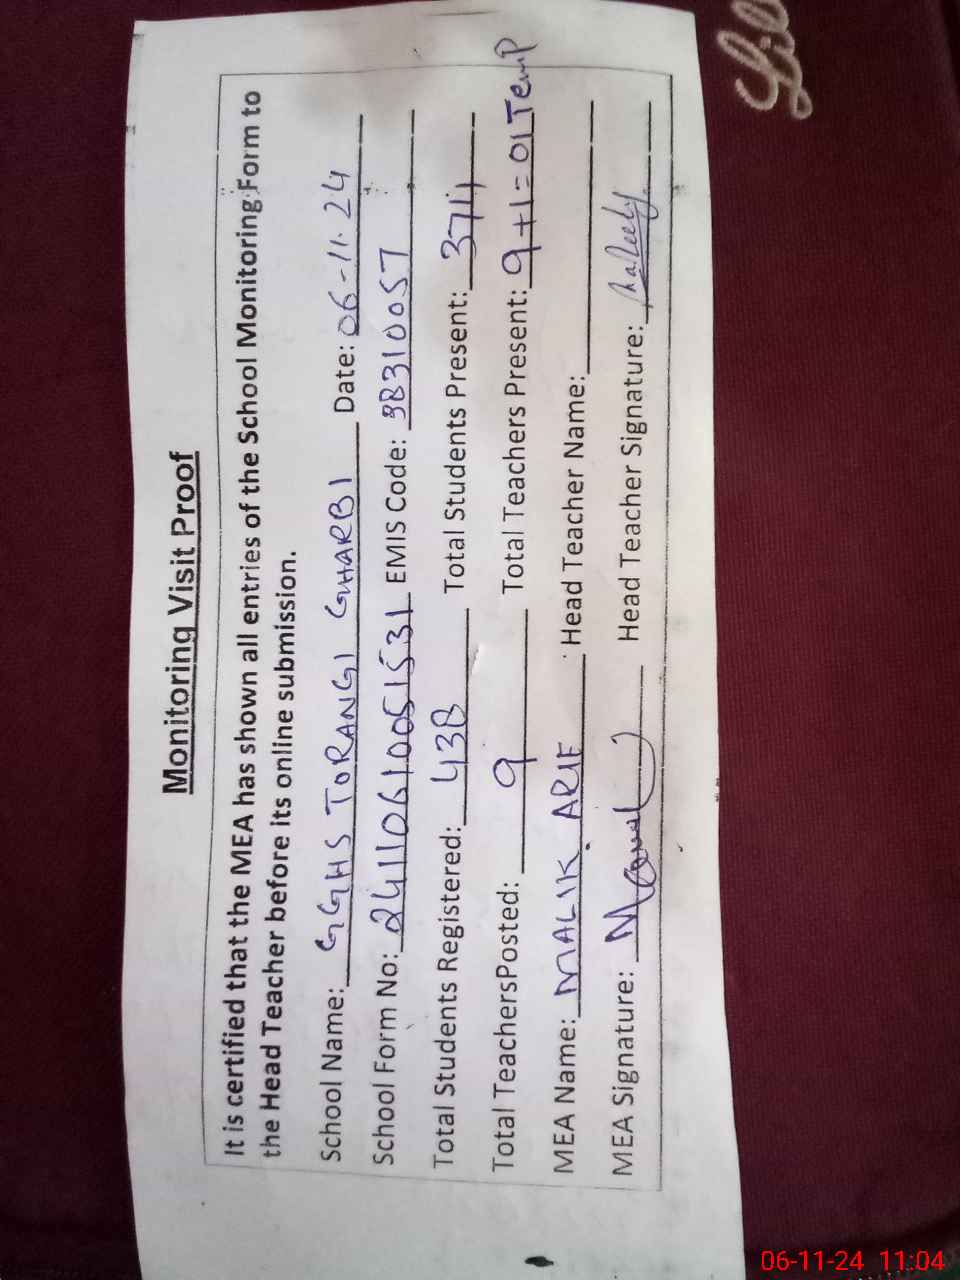 Monitoring Visit Proof
It is certified that the MEA has shown all entries of the School Monitoring Form to
the Head Teacher before its online submission.
School Name: GGHS TORANGI GHARBI Date: 06-11-24
School Form No: 24110610051531 EMIS Code: 38310057
Total Students Registered: 438 Total Students Present: 374
Total TeachersPosted: 9 Total Teachers Present: 9+1=01 Temp
MEA Name: MALIK ARIF Head Teacher Name:
MEA Signature: Head Teacher Signature:
06-11-24 11:04